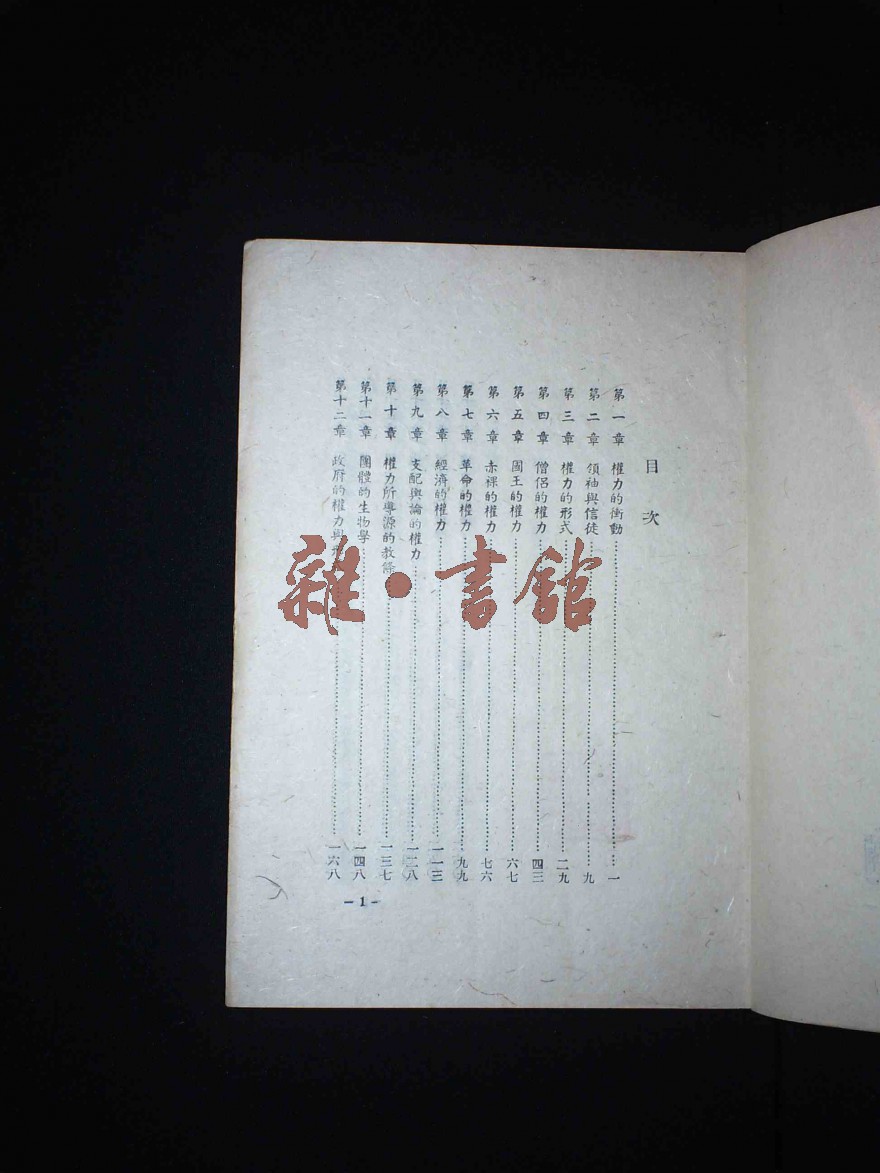 目次
第一章 權力的衝動……一
第二章 領袖與信徒……九
第三章 權力的形式……二九
第四章 僧侶的權力……四三
第五章 國王的權力……六七
第六章 赤裸的權力……七六
第七章 革命的權力……九九
第八章 經濟的權力……一一三
第九章 支配輿論的權力……一二八
第十章 權力所導源的教條……一三七
第十一章 團體的生物學……一四八
第十二章 政府的權力與……一六八
-1-
雜·書館